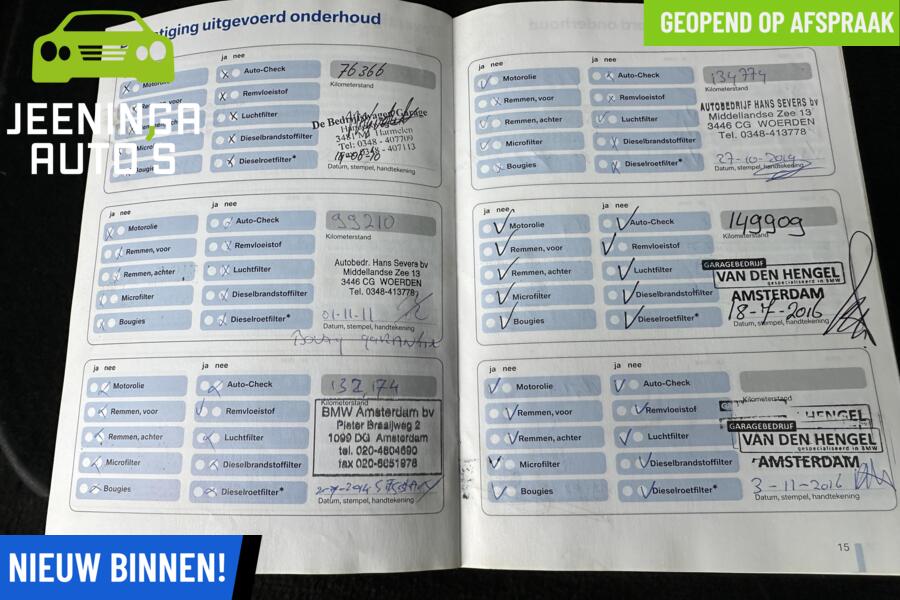 GEOPEND OP AFSPRAAK
JEENINGA
AUTO'S
tiging uitgevoerd onderhoud
ja nee
Auto-Check
Remvloeistof
Luchtfilter
Dieselbrandstoffilter
Dieselroetfilter*
76366
Kilometerstand
De Bedrijfswagen Garage
3481 MA Harmelen
Tel: 0348 - 407709
Fax: 0348 - 407113
ja nee
Motorolie
Remmen, voor
Remmen, achter
Microfilter
Bougies
ja nee
Auto-Check
Remvloeistof
Luchtfilter
Dieselbrandstoffilter
Dieselroetfilter*
99210
Kilometerstand
Autobedr. Hans Severs bv
Middellandse Zee 13
3446 CG WOERDEN
Tel. 0348-413778
01-11-11
Datum, stempel, handtekening
ja nee
Motorolie
Remmen, voor
Remmen, achter
Microfilter
Bougies
ja nee
Auto-Check
Remvloeistof
Luchtfilter
Dieselbrandstoffilter
Dieselroetfilter*
132174
Kilometerstand
BMW Amsterdam bv
Pieter Braaijweg 2
1099 DG Amsterdam
tel. 020-4604690
fax 020-6651978
Datum, stempel, handtekening
ja nee
Motorolie
Remmen, voor
Remmen, achter
Microfilter
Bougies
ja nee
Auto-Check
Remvloeistof
Luchtfilter
Dieselbrandstoffilter
Dieselroetfilter*
134774
Kilometerstand
AUTOBEDRIJF HANS SEVERS bv
Middellandse Zee 13
3446 CG WOERDEN
Tel. 0348-413778
27-10-2014
Datum, stempel, handtekening
ja nee
Motorolie
Remmen, voor
Remmen, achter
Microfilter
Bougies
ja nee
Auto-Check
Remvloeistof
Luchtfilter
Dieselbrandstoffilter
Dieselroetfilter*
149909
Kilometerstand
GARAGEBEDRIJF
VAN DEN HENGEL
gespecialiseerd in BMW
AMSTERDAM
18-7-2016
Datum, stempel, handtekening
ja nee
Motorolie
Remmen, voor
Remmen, achter
Microfilter
Bougies
ja nee
Auto-Check
Remvloeistof
Luchtfilter
Dieselbrandstoffilter
Dieselroetfilter*
Kilometerstand
HENGEL
GARAGEBEDRIJF
VAN DEN HENGEL
gespecialiseerd in BMW
AMSTERDAM
3-11-2016
Datum, stempel, handtekening
15
NIEUW BINNEN!